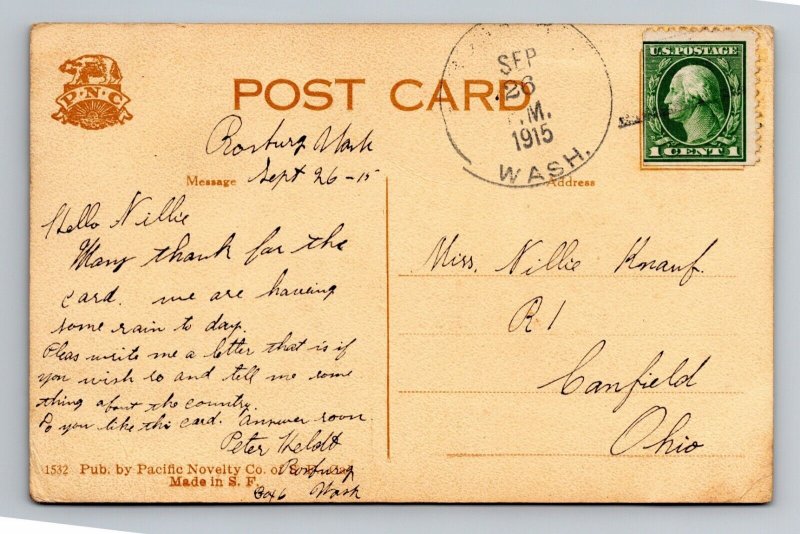 P·N·C
POST CARD
SEP
26
.M.
1915
WASH.
U.S. POSTAGE
1 CENT 1
Rosburg Wash
Sept 26-15
Message
Address
Hello Nillie
Many thank for the
card. we are haveing
some rain to day.
Pleas write me a letter that is if
you wish so and tell me some
thing about the country.
Do you like this card. Answer soon.
Peter Heldt
Rosburg
Box 6 Wash
Miss. Nillie Knauf.
R1
Canfield
Ohio
1532 Pub. by Pacific Novelty Co. of
Made in S. F.